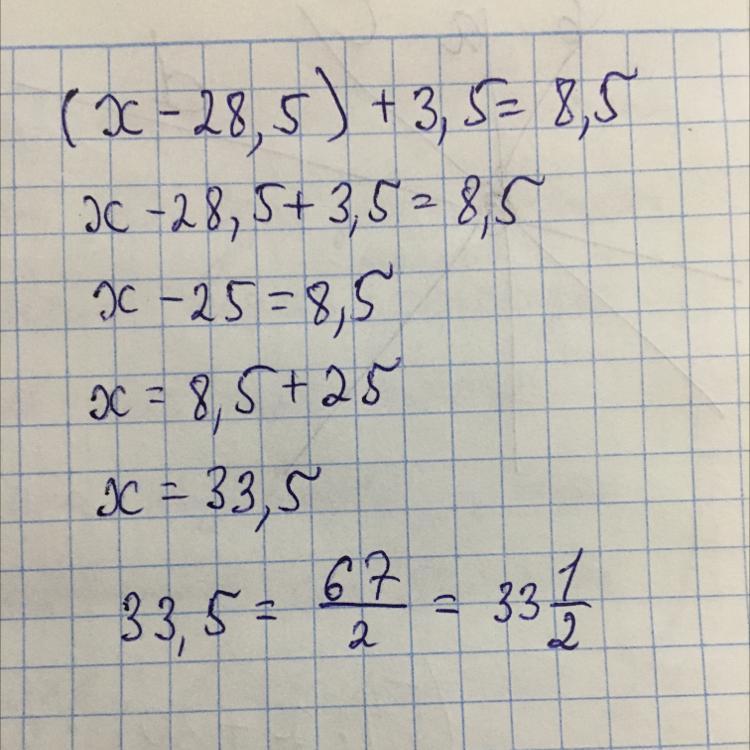 (x - 28,5) + 3,5 = 8,5
x - 28,5 + 3,5 = 8,5
x - 25 = 8,5
x = 8,5 + 25
x = 33,5
33,5 = 67/2 = 33 1/2